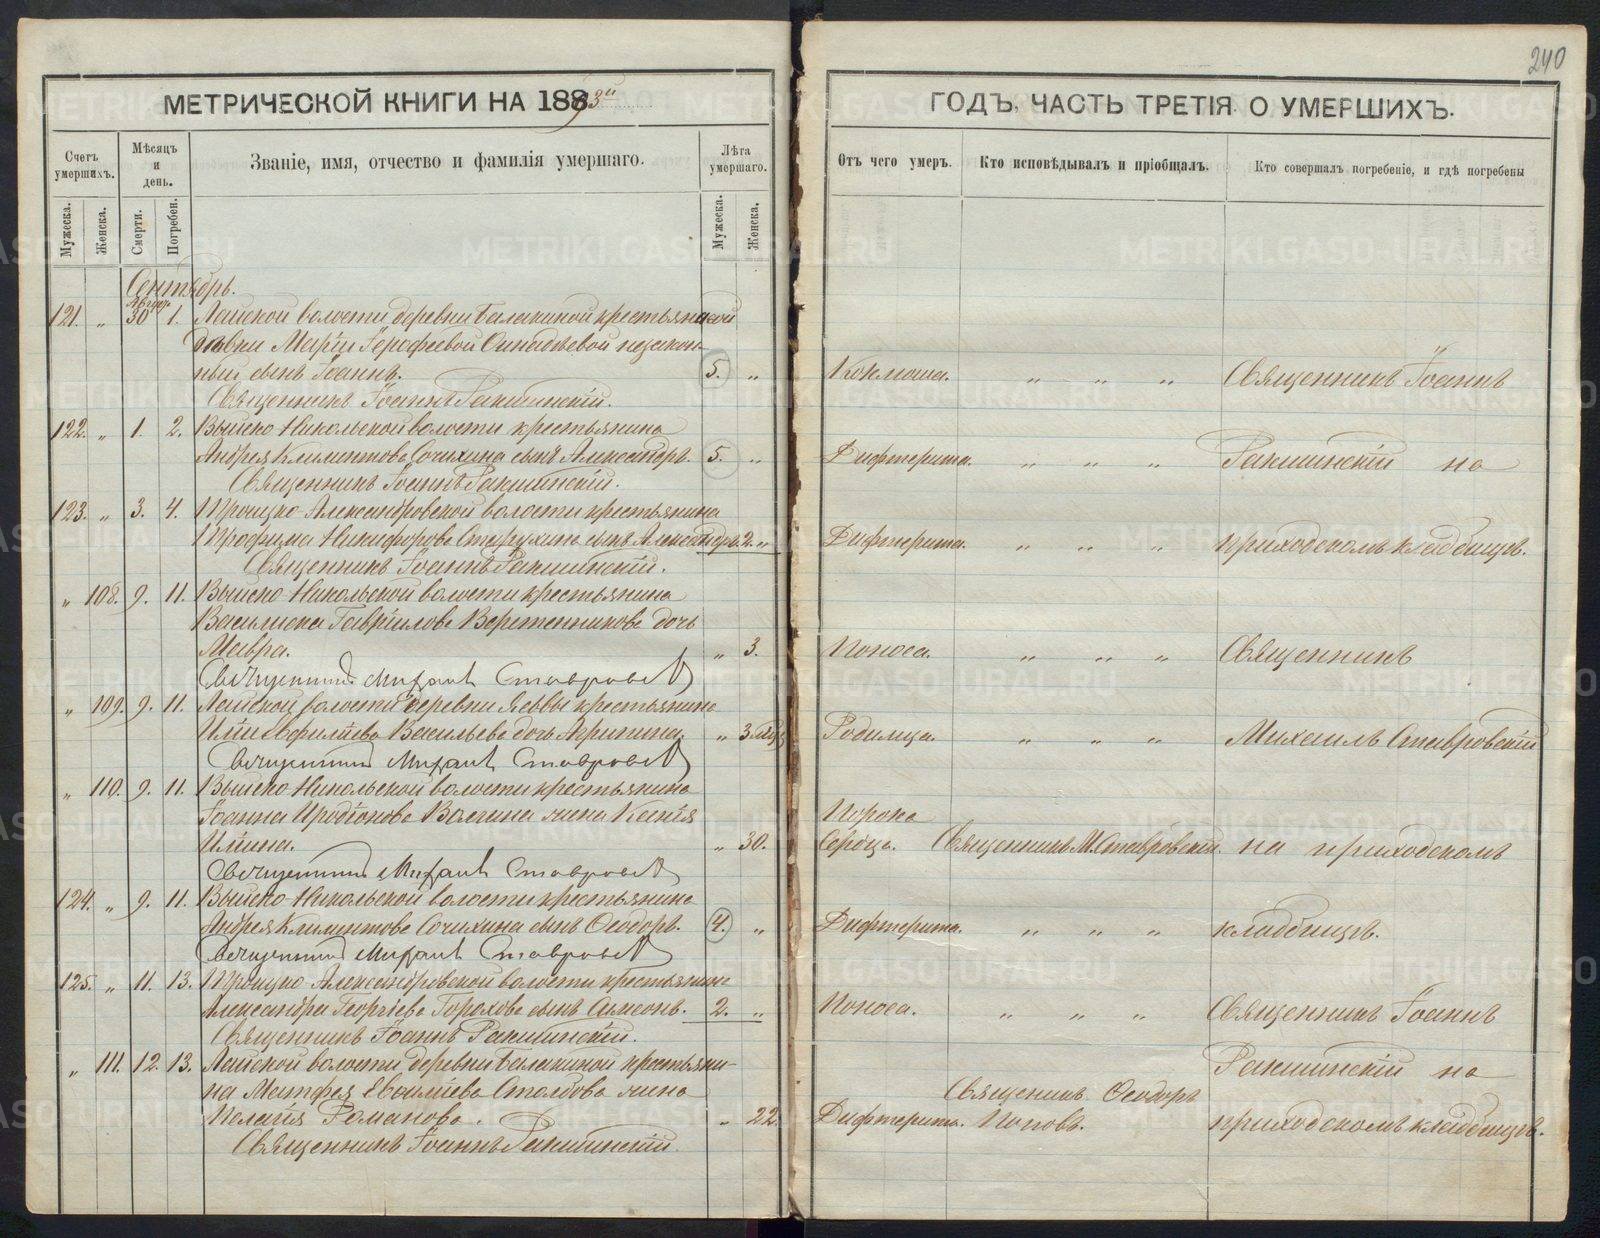 240
МЕТРИЧЕСКОЙ КНИГИ НА 1893й
ГОДЪ, ЧАСТЬ ТРЕТІЯ О УМЕРШИХЪ.
Счетъ умершихъ.
Мѣсяцъ и день.
Званіе, имя, отчество и фамилія умершаго.
Лѣта умершаго.
Отъ чего умеръ.
Кто исповѣдывалъ и пріобщалъ.
Кто совершалъ погребеніе, и гдѣ погребены
Мужеска. Женска. Смерти. Погребен. Мужеска. Женска.
Сентябрь.
Авгус.
121. „ 30 1. Лайской волости деревни Балакиной крестьянской
дѣвки Маріи Герофеевой незакон-
ный сынъ Іоаннъ. 5. „ Коклюша. „ „ „ Священникъ Іоаннъ
Священникъ Іоаннъ Ракшинскій.
122. „ 1. 2. Выйско-Никольской волости крестьянина
Андрея Климентова Сочихина сынъ Александръ. 5. „ Дифтерита. „ „ „ Ракшинскій на
Священникъ Іоаннъ Ракшинскій.
123. „ 3. 4. Троицко-Александровской волости крестьянина
Трофима Никифорова Старухина сынъ Александръ. 2. „ Дифтерита. „ „ „ приходскомъ кладбищѣ.
Священникъ Іоаннъ Ракшинскій.
„ 108. 9. 11. Выйско-Никольской волости крестьянина
Василиска Гавріилова Веретенникова дочь
Мавра. „ 3. Поноса. „ „ „ Священникъ
Священникъ Михаилъ Ставровскій
„ 109. 9. 11. Лайской волости деревни крестьянина
Васильева дочь Агрипина. „ 3 Родимца. „ „ „ Михаилъ Ставровскій
Священникъ Михаилъ Ставровскій
„ 110. 9. 11. Выйско-Никольской волости крестьянина
Іоанна Иродіонова Волгина жена Ксенія Порока
Ильина. „ 30. Сердца. Священникъ М. Ставровскій. на приходскомъ
Священникъ Михаилъ Ставровскій
124. „ 9. 11. Выйско-Никольской волости крестьянина
Андрея Климентова Сочихина сынъ Ѳеодоръ. 4. „ Дифтерита. „ „ „ кладбищѣ.
Священникъ Михаилъ Ставровскій
125. „ 11. 13. Троицко-Александровской волости крестьянина
Александра Георгіева Горохова сынъ Симеонъ. 2. „ Поноса. „ „ „ Священникъ Іоаннъ
Священникъ Іоаннъ Ракшинскій.
„ 111. 12. 13. Лайской волости деревни Балакиной крестьяни-
на Матфея Евсиліева Столбова жена
Пелагія Романова. „ 22. Дифтеритъ. Священникъ Ѳеодоръ Поповъ. Ракшинскій на приходскомъ кладбищѣ.
Священникъ Іоаннъ Ракшинскій.
METRIKI.GASU-URAL.RU